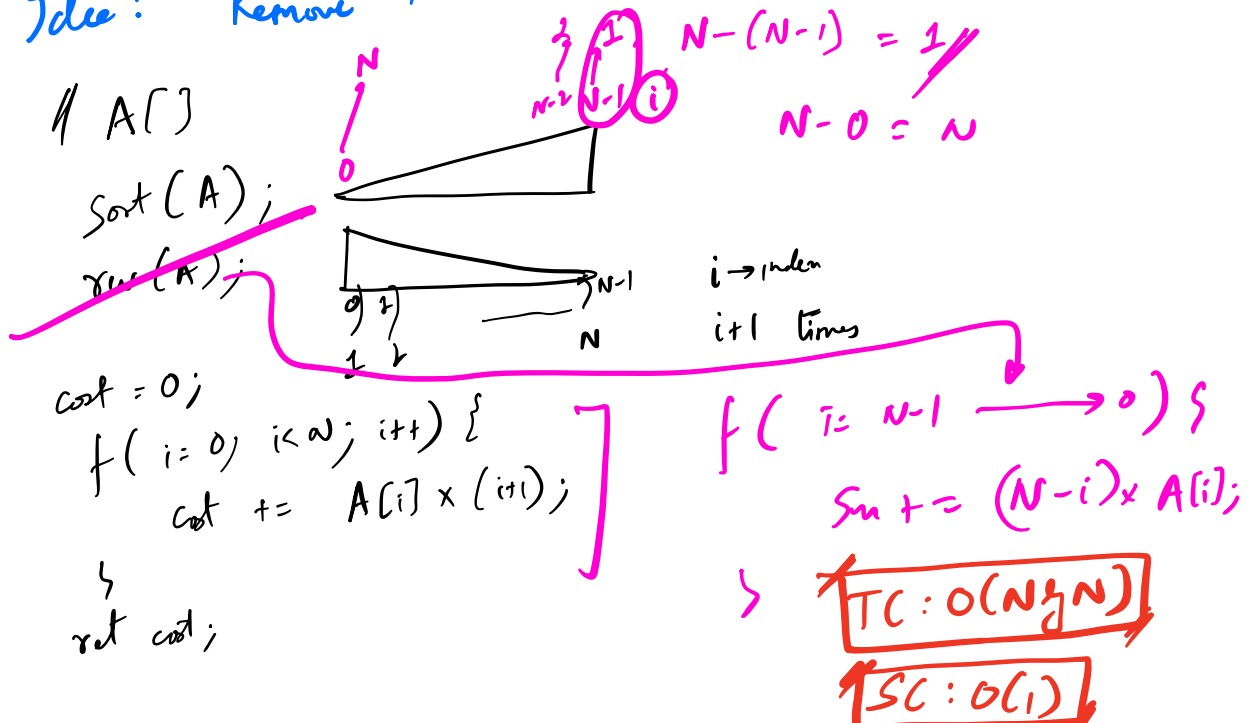 Idea: Remove
A[]
Sort(A);
rev(A);
N
0
2 1
N-2 N-1 i
N-(N-1) = 1
N-0 = N
0 1 N-1
1 2 N
i → index
i+1 times
cost = 0;
f( i=0; i<N; i++) {
cost += A[i] x (i+1);
}
ret cost;
f( i= N-1 → 0) {
Sum += (N-i) x A[i];
}
TC: O(N lg N)
SC: O(1)